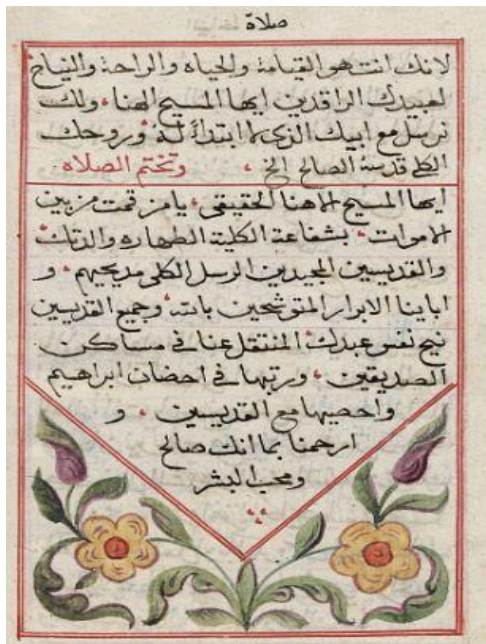 صلاة
لانك انت هو القيامة والحياه والراحة والنياح
لعبيدك الراقدين ايها المسيح الهنا، ولك
نرسل مع ابيك الذي لا ابتدأ له، وروحك
الكلي قدسه الصالح الخ، وتختم الصلاه
ايها المسيح الاهنا الحقيقي، يا من قمت من بين
الاموات، بشفاعة الكلية الطهاره والدتك
والقديسين المجيدين الرسل الكلي مديحهم، و
اباينا الابرار المتوشحين بالله، وجميع القديسين
نيح نفس عبدك المنتقل عنا في مساكن
الصديقين، ورتبها في احضان ابراهيم
واحصيها مع القديسين، و
ارحمنا بما انك صالح
ومحب البشر